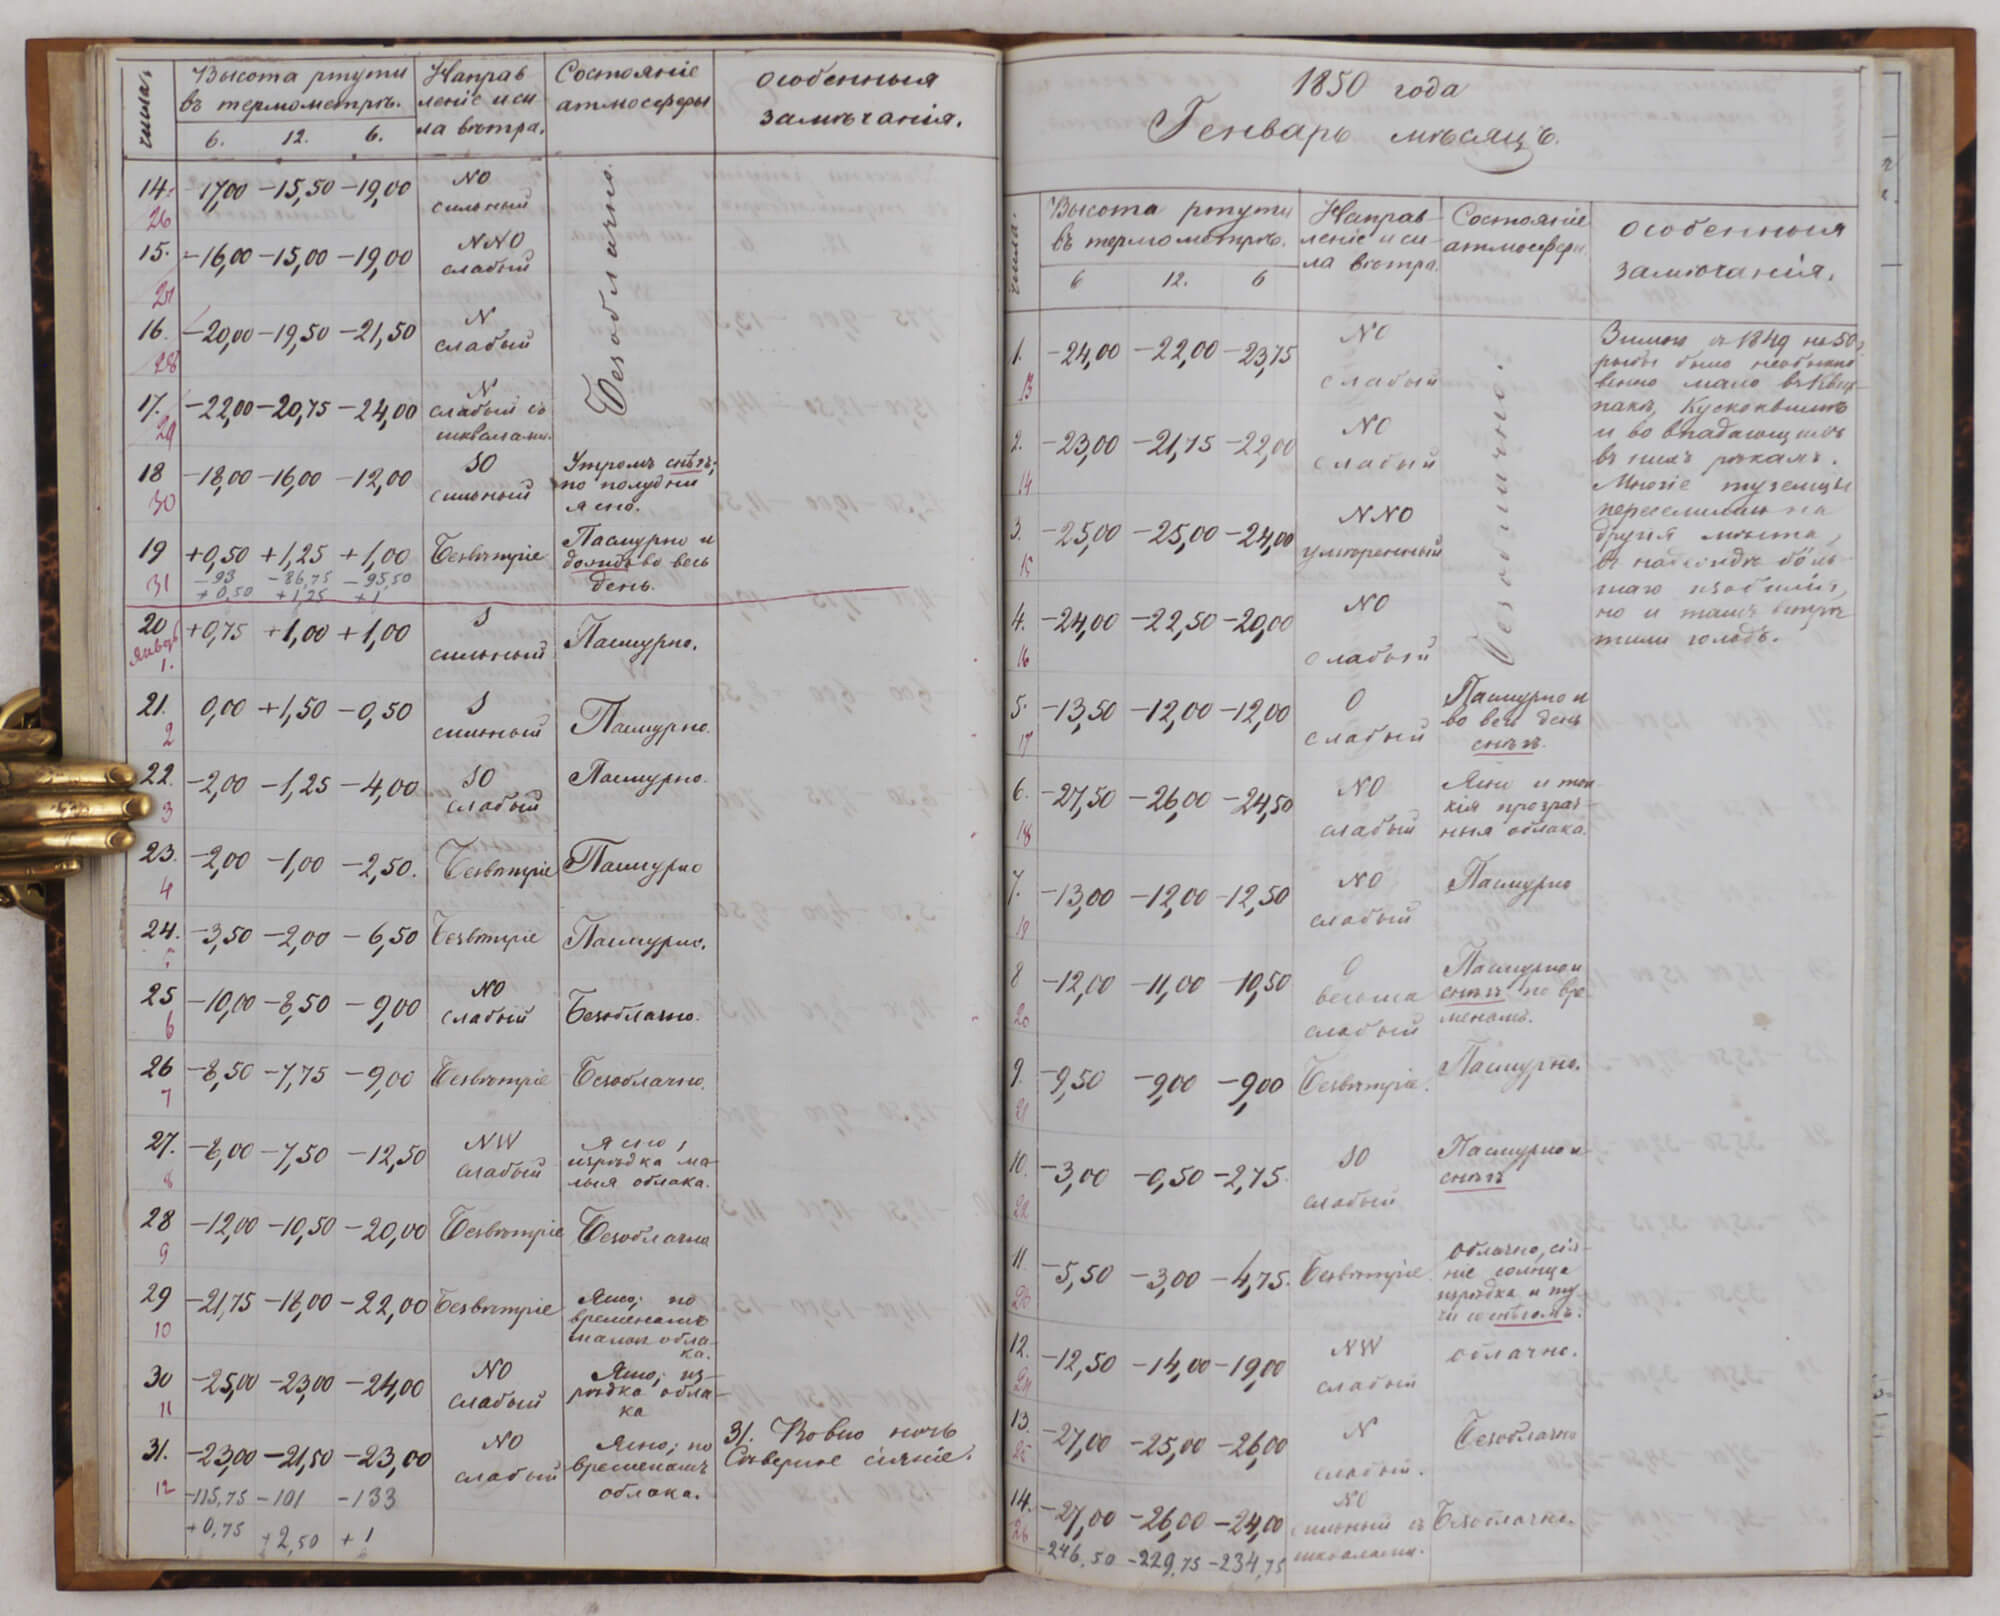 числа.
Высота ртути
въ термометрѣ.
6. 12. 6.
Направ
леніе и си
ла вѣтра.
Состояніе
атмосферы
особенныя
замѣчанія.
14. -17,00 -15,50 -19,00 NO
26 сильный
Безоблачно.
15. -16,00 -15,00 -19,00 NNO
слабый
27
16. -20,00 -19,50 -21,50 N
28 слабый
17. -22,00 -20,75 -24,00 N
29 слабый съ
шквалами.
18 -18,00 -16,00 -12,00 SO
30 сильный
Утромъ снѣгъ;
по полудни
ясно.
19 +0,50 +1,25 +1,00 Безвѣтріе
31 -93 -86,75 -95,50
+0,50 +1,25 +1
Пасмурно и
дождь во весь
день.
20 +0,75 +1,00 +1,00 S
Январь сильный Пасмурно.
1.
21. 0,00 +1,50 -0,50 S
2 сильный Пасмурно.
22. -2,00 -1,25 -4,00 SO Пасмурно.
3 слабый
23. -2,00 -1,00 -2,50. Безвѣтріе Пасмурно
4
24. -3,50 -2,00 -6,50 Безвѣтріе Пасмурно.
25 -10,00 -8,50 -9,00 NO
6 слабый Безоблачно.
26 -8,50 -7,75 -9,00 Безвѣтріе Безоблачно.
7
27. -8,00 -7,50 -12,50 NW
8 слабый
ясно,
изрѣдка ма-
лыя облака.
28 -12,00 -10,50 -20,00 Безвѣтріе Безоблачно
9
29 -21,75 -18,00 -22,00 Безвѣтріе
10
Ясно; по
временамъ
малыя обла-
ка.
30 -25,00 -23,00 -24,00 NO
11 слабый
Ясно; из-
рѣдка обла-
ка
31. -23,00 -21,50 -23,00 NO
12 слабый
Ясно; по
временамъ
облака.
31. Во всю ночь
Сѣверное сіяніе.
-115,75 -101 -133
+0,75 +2,50 +1
1850 года
Генварь мѣсяцъ.
числа.
Высота ртути
въ термометрѣ.
6 12. 6
Направ-
леніе и си-
ла вѣтра.
Состояніе
атмосферы.
особенныя
замѣчанія.
1. -24,00 -22,00 -23,75 NO
13 слабый
Безоблачно.
2. -23,00 -21,75 -22,00 NO
14 слабый
3. -25,00 -25,00 -24,00 NNO
15 умѣренный
4. -24,00 -22,50 -20,00 NO
16 слабый
Зимою съ 1849 на 50,
рыбы было необыкно
венно мало въ Квих-
пакѣ, Кускоквимѣ
и во впадающихъ
въ нихъ рѣкахъ.
Многіе туземцы
переселились на
другія мѣста,
въ надеждѣ боль-
шаго изобилія,
но и тамъ встрѣ
тили голодъ.
5. -13,50 -12,00 -12,00 O
17 слабый
Пасмурно и
во весь день
снѣгъ.
6. -27,50 -26,00 -24,50 NO
18 слабый
Ясно и тон-
кія прозрач-
ныя облака.
7. -13,00 -12,00 -12,50 NO
19 слабый
Пасмурно
8 -12,00 -11,00 -10,50 O
20 весьма
слабый
Пасмурно и
снѣгъ по вре-
менамъ.
9. -9,50 -9,00 -9,00 Безвѣтріе. Пасмурно.
21
10. -3,00 -0,50 -2,75. SO
22 слабый
Пасмурно и
снѣгъ
11. -5,50 -3,00 -4,75. Безвѣтріе.
23
облачно, сія-
ніе солнца
изрѣдка и ту-
чи со снѣгомъ.
12. -12,50 -14,00 -19,00 NW облачно.
24 слабый
13. -27,00 -25,00 -26,00 N Безоблачно
25 слабый.
14. -27,00 -26,00 -24,00 NO
26 сильный съ Безоблачно.
шквалами.
-246,50 -229,75 -234,75